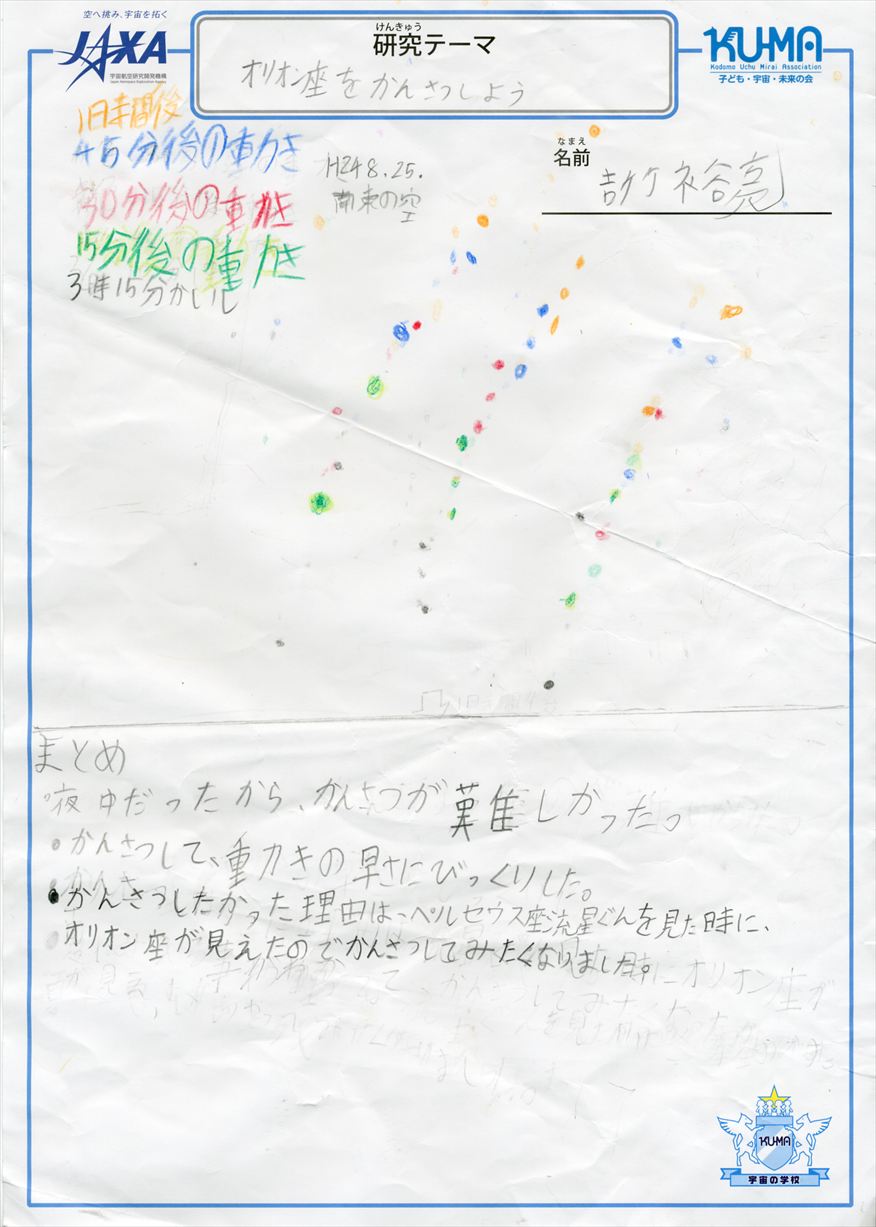 空へ挑み、宇宙を拓く
JAXA
宇宙航空研究開発機構
Japan Aerospace Exploration Agency
けんきゅう
研究テーマ
オリオン座をかんさつしよう
KU-MA
Kodomo Uchu Mirai Association
子ども・宇宙・未来の会
1時間後
45分後の動き
30分後の動き
15分後の動き
3時15分かいし
H24 8.25.
南東の空
なまえ
名前
まとめ
・夜中だったから、かんさつが難しかった。
・かんさつして、動きの早さにびっくりした。
・かんさつしたかった理由は、ペルセウス座流星ぐんを見た時に、
オリオン座が見えたのでかんさつしてみたくなりました。
KU-MA
宇宙の学校